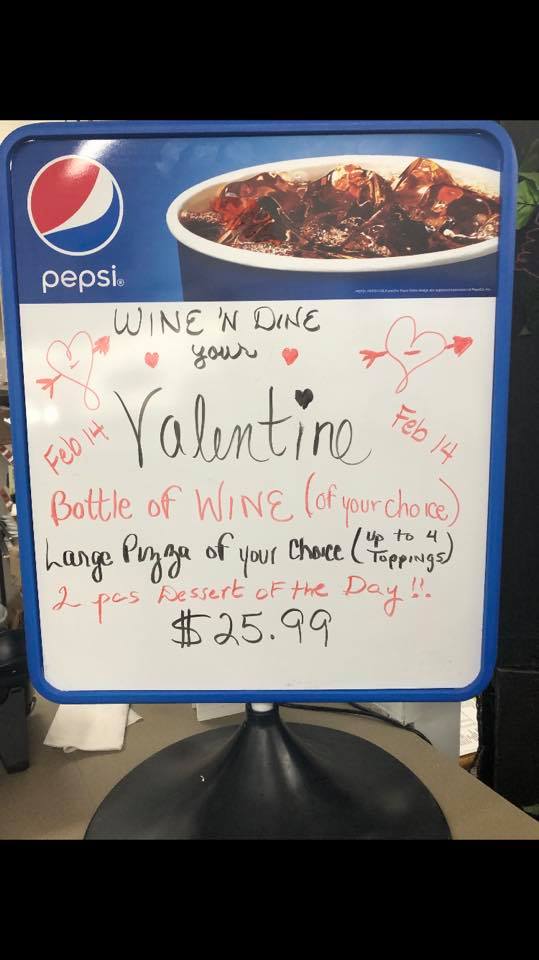 pepsi®
WINE 'N DINE
your
Valentine
Feb 14
Feb 14
Bottle of WINE (of your choice)
Large Pizza of your Choice (up to 4 Toppings)
2 pcs Dessert of the Day!!.
$25.99